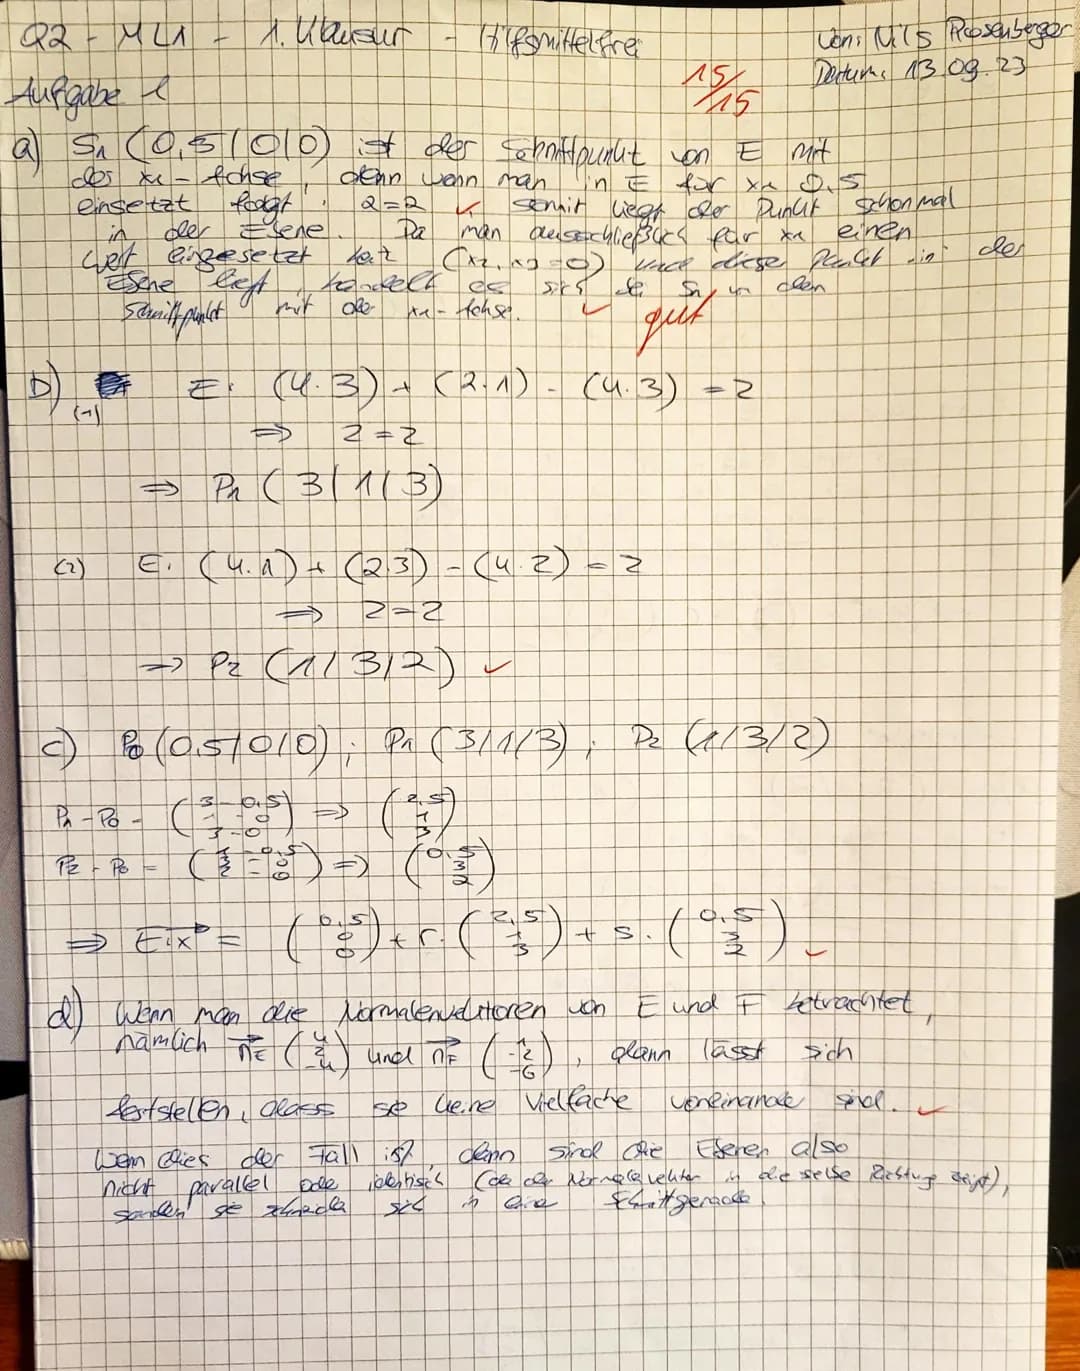 Q2 - ML1 - 1. Klausur - Hilfsmittelfrei
von: Nils Rosenberger
Datum: 13.09.23
15/15
Aufgabe 1
a) S₁ (0,5/0/0) ist der Schnittpunkt von E mit
der x₁-Achse, denn wenn man in E für x₁ 0,5
einsetzt folgt: 2=2 ✓ somit liegt der Punkt schonmal
in der Ebene. Da man ausschließlich für x₁ einen
Wert eingesetzt hat (x₂, x₃ = 0) und dieser Punkt in der
Ebene liegt, handelt es sich bei S₁ um den
Schnittpunkt mit der x₁-Achse. ✓ gut
b) (1) E: (4·3) + (2·1) - (4·3) = 2
⇒ 2=2
⇒ P₁ (3/1/3)
(2) E: (4·1) + (2·3) - (4·2) = 2
⇒ 2=2
⇒ P₂ (1/3/2) ✓
c) P₀ (0,5/0/0); P₁ (3/1/3); P₂ (1/3/2)
P₁ - P₀ = (3-0,5 1-0 3-0) ⇒ (2,5 1 3)
P₂ - P₀ = (1-0,5 3-0 2-0) ⇒ (0,5 3 2)
⇒ E: x⃗ = (0,5 0 0) + r · (2,5 1 3) + s · (0,5 3 2) ✓
d) Wenn man die Normalenvektoren von E und F betrachtet,
nämlich n⃗E (4 2 -4) und n⃗F (1 -2 -6), dann lässt sich
feststellen, dass sie keine Vielfache voneinander sind. ✓
Wenn dies der Fall ist, dann sind die Ebenen also
nicht parallel oder identisch (da der Normalenvektor in die selbe Richtung zeigt),
sondern sie schneiden sich in einer Schnittgerade.